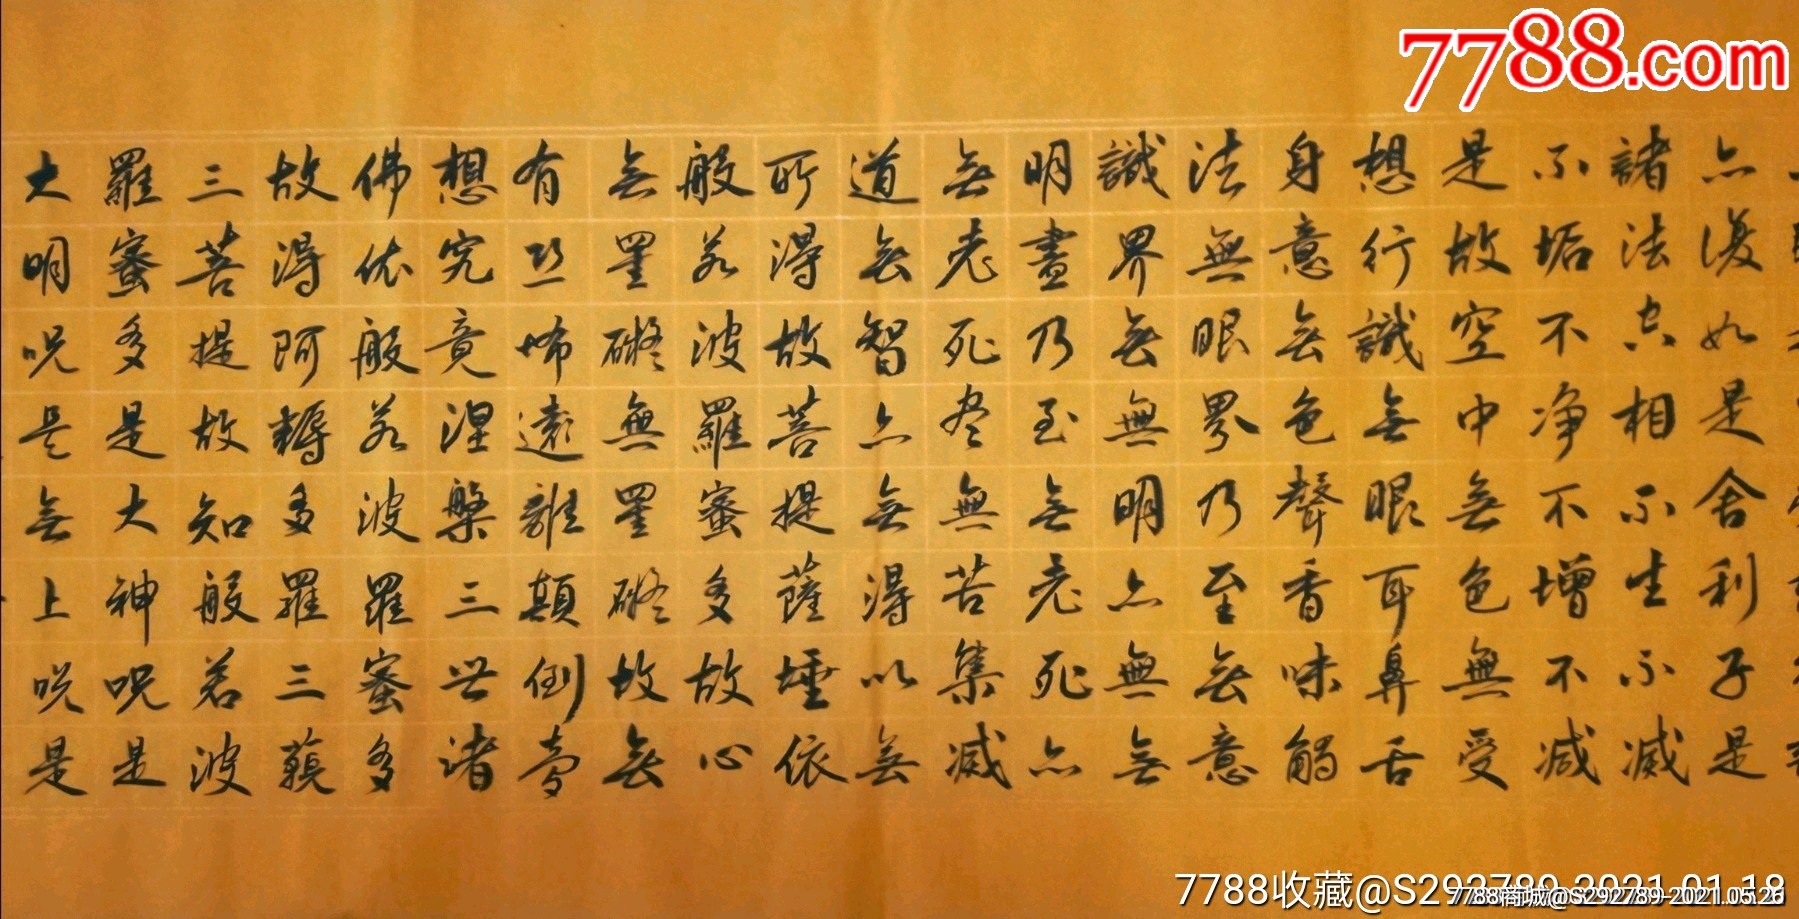 亦復如是舍利子是
諸法空相不生不滅
不垢不净不增不减
是故空中無色無受
想行識無眼耳鼻舌
身意無色聲香味觸
法無眼界乃至無意
識界無無明亦無無
明盡乃至無老死亦
無老死尽無苦集滅
道無智亦無得以無
所得故菩提薩埵依
般若波羅蜜多故心
無罣礙無罣礙故無
有恐怖遠離顛倒夢
想究竟涅槃三世諸
佛依般若波羅蜜多
故得阿耨多羅三藐
三菩提故知般若波
羅蜜多是大神呪是
大明呪是無上呪是
7788.com
7788收藏@S292789-2021.01.18
7788商城@S292789-2021.05.26